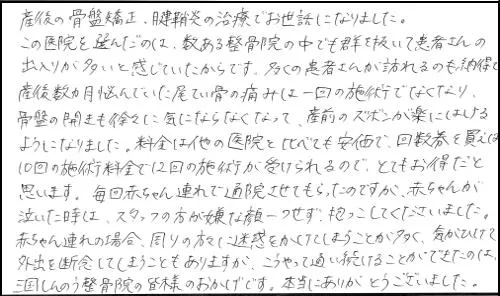 産後の骨盤矯正、腱鞘炎の治療でお世話になりました。
この医院を選んだのは、数ある整骨院の中でも群を抜いて患者さんの
出入りが多いと感じていたからです。多くの患者さんが訪れるのも納得で
産後数カ月悩んでいた尾てい骨の痛みは一回の施術でなくなり、
骨盤の開きも徐々に気にならなくなって、産前のズボンが楽にはける
ようになりました。料金は他の医院と比べても安価で、回数券を買えば
10回の施術料金で12回の施術が受けられるので、とてもお得だと
思います。毎回赤ちゃん連れで通院させてもらったのですが、赤ちゃんが
泣いた時は、スタッフの方が嫌な顔一つせず、抱っこしてくださいました。
赤ちゃん連れの場合、周りの方に迷惑をかけてしまうことが多く、気がひけて
外出を断念してしまうこともありますが、こうやって通い続けることができたのは、
三国しんのう整骨院の皆様のおかげです。本当にありがとうございました。